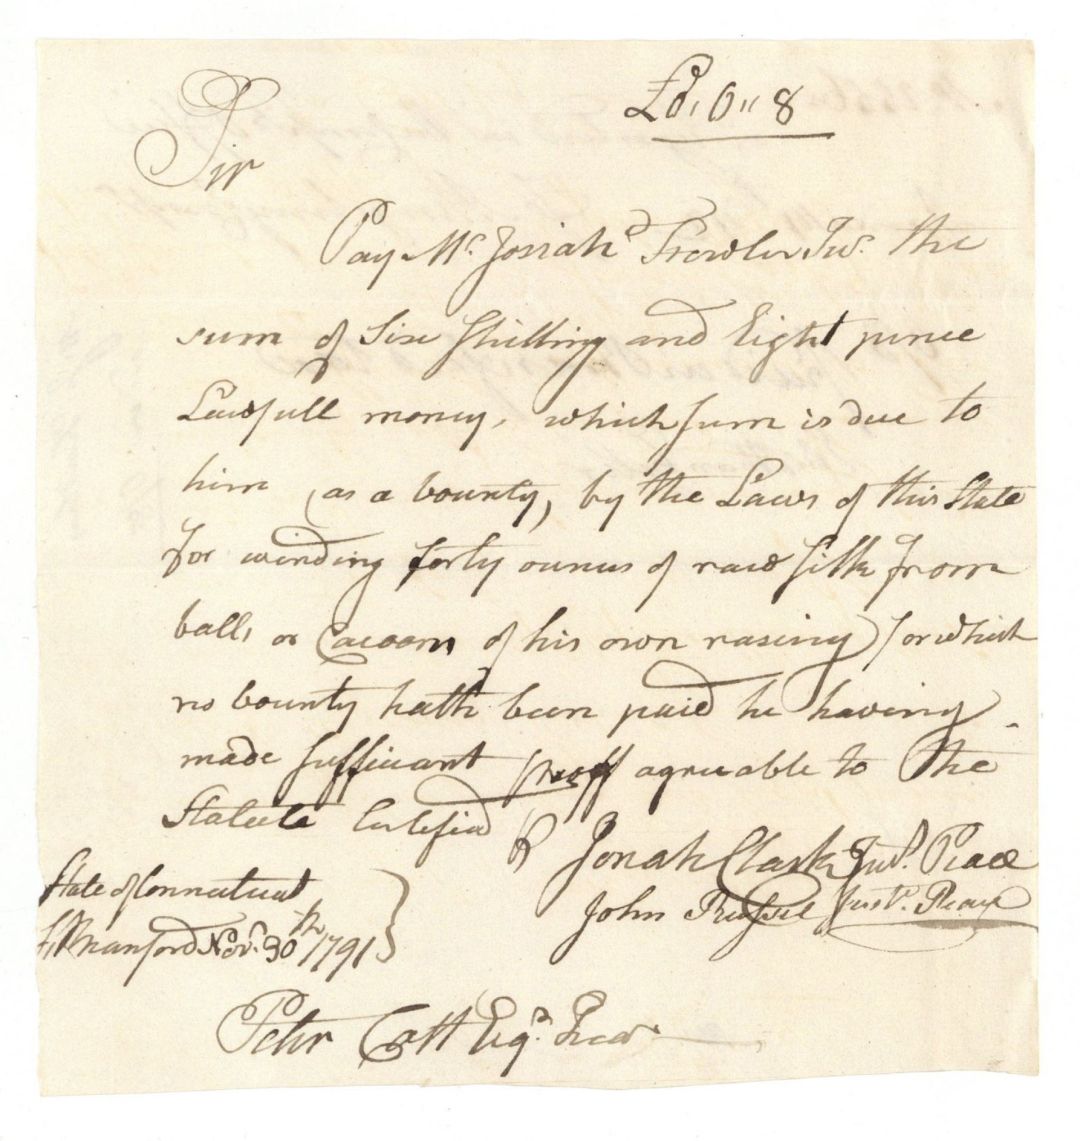 £0,,6,,8
Sir
Pay Mr. Josiah Fowler Jur. the
sum of Six Shilling and Eight pence
Lawfull money, which sum is due to
him (as a bounty, by the Laws of this State
for winding forty ounces of raw silk from
balls or Cacoons of his own rasing) for which
no bounty hath been paid he having
made sufficiant proff agreable to the
Statute Certified
Jonah Clark Just. Peace
John Russel Just. Peace
State of Connecticut
Branford Novr. 30th 1791
Peter Colt Esqr. Trear